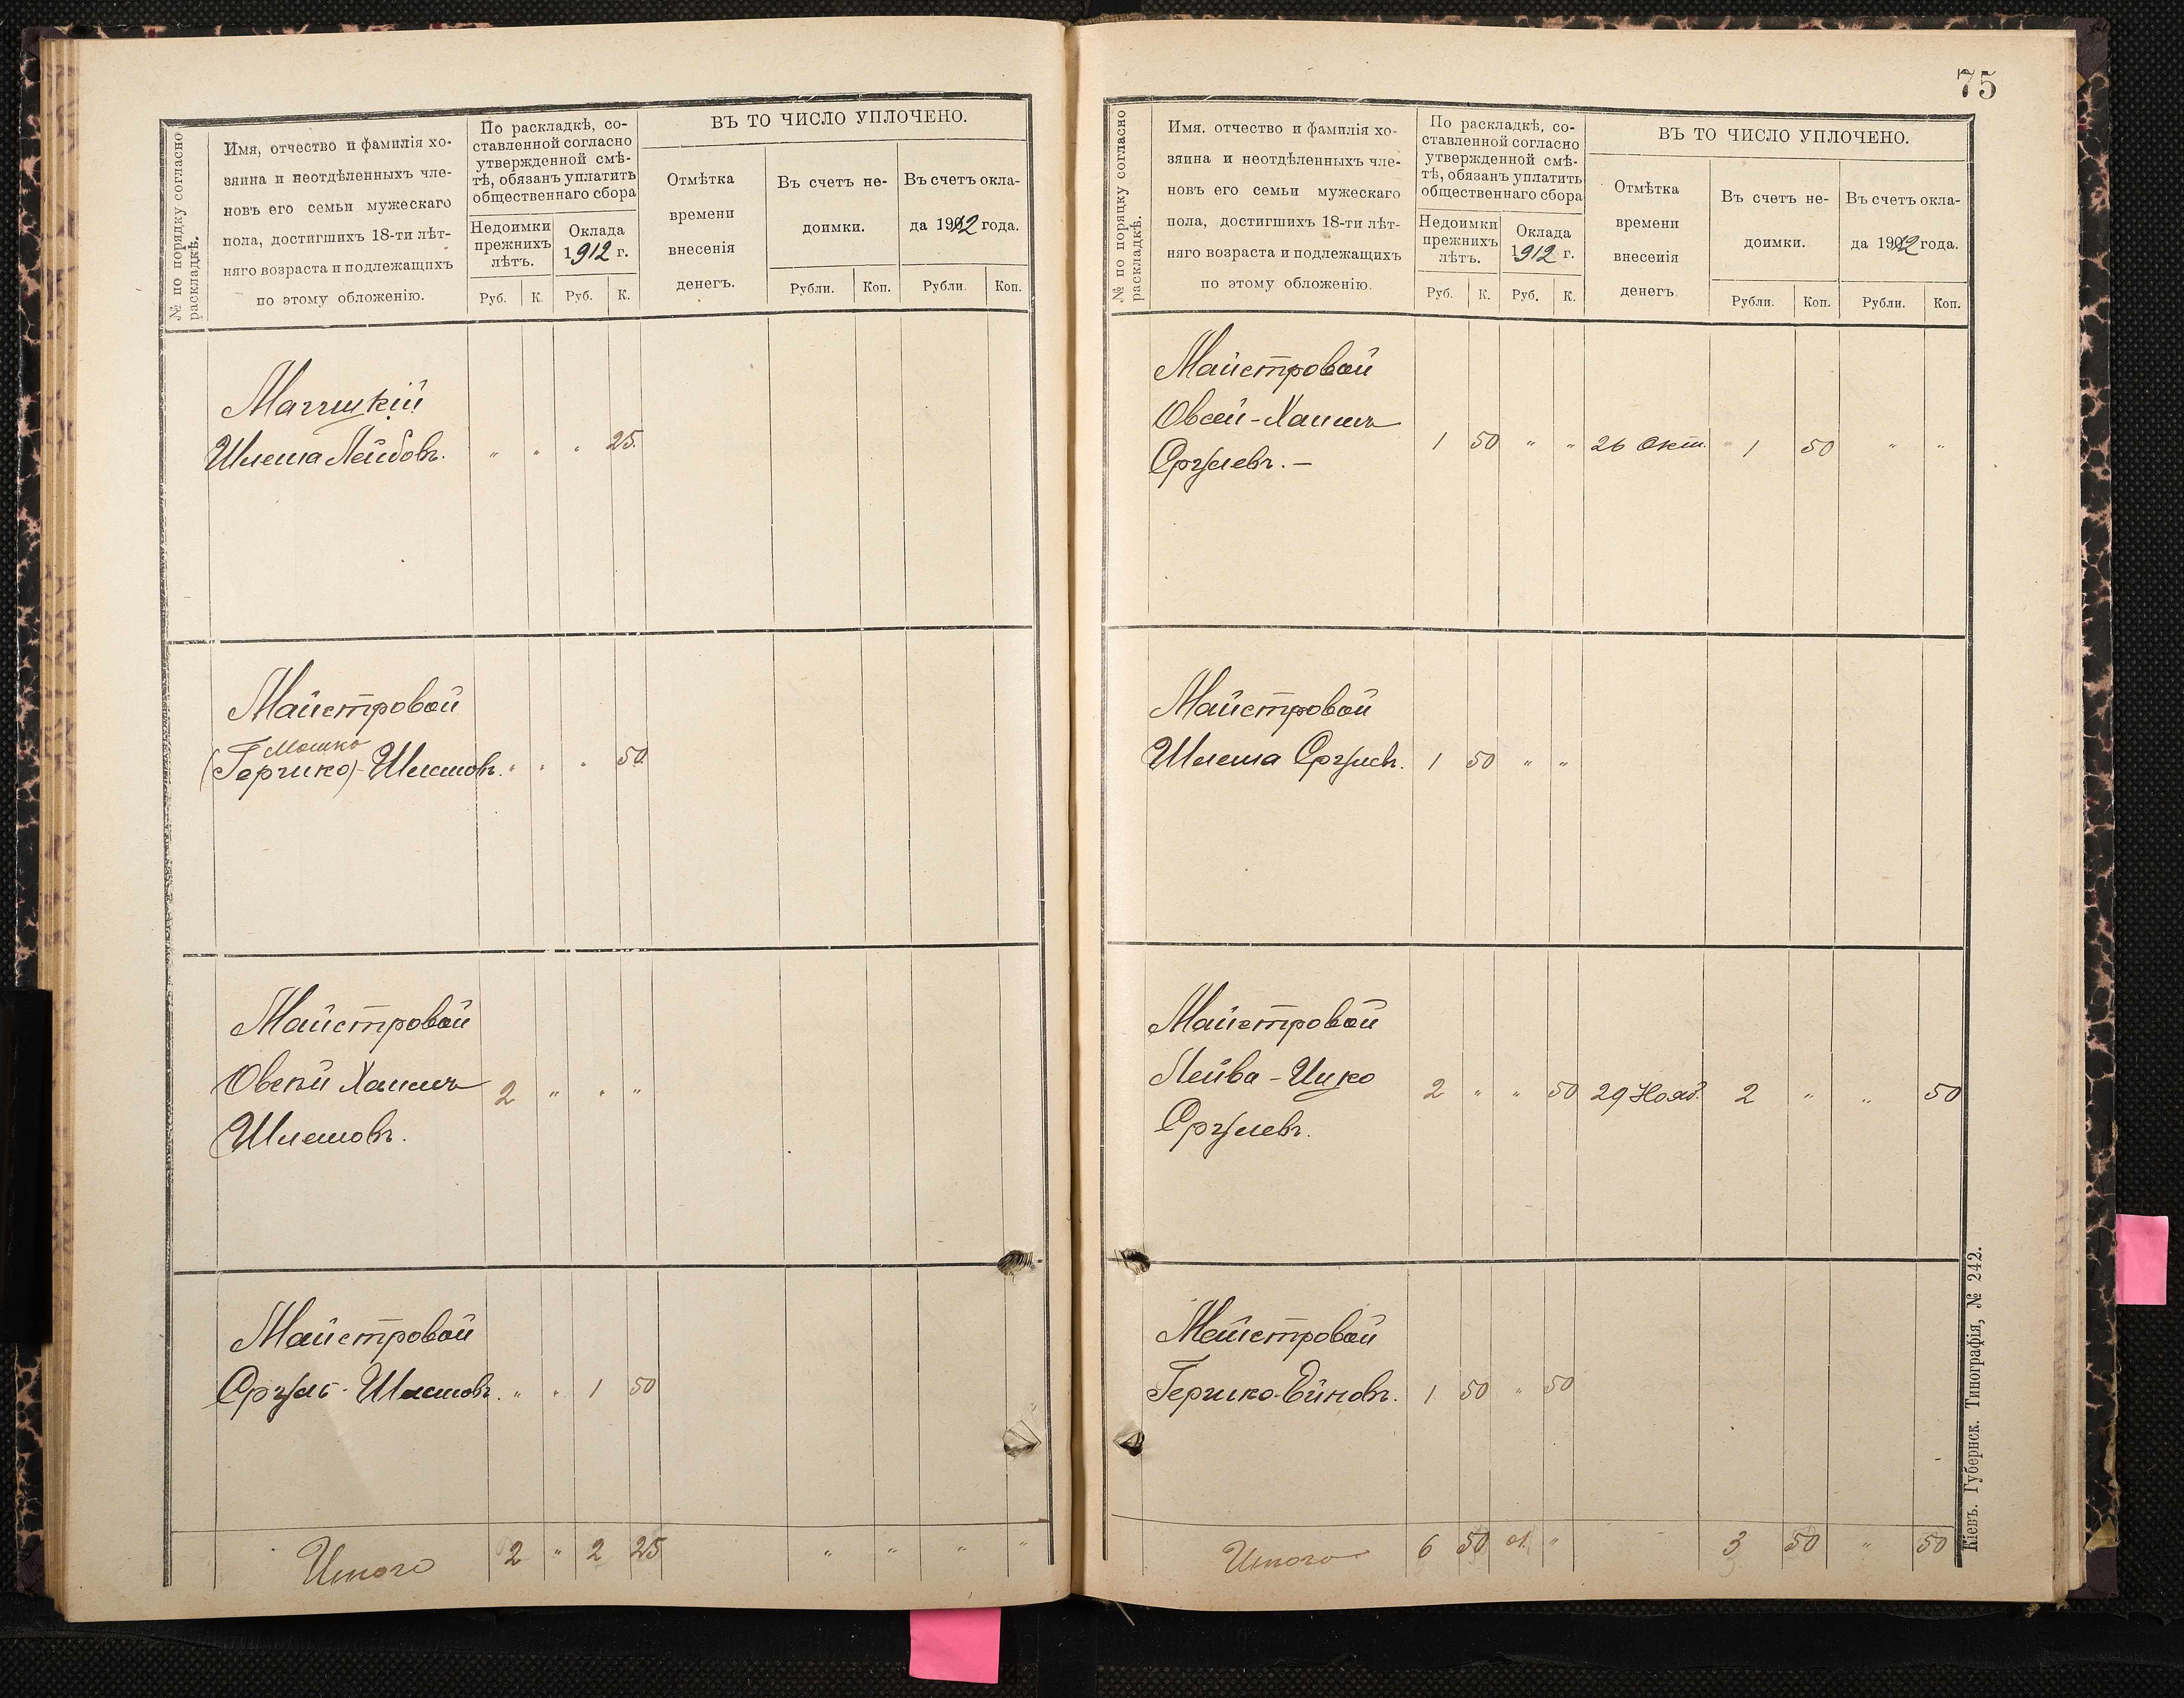 № по порядку согласно
раскладкѣ.
Имя, отчество и фамилія хо-
зяина и неотдѣленныхъ чле-
новъ его семьи мужескаго
пола, достигшихъ 18-ти лѣт-
няго возраста и подлежащихъ
по этому обложенію.
По раскладкѣ, со-
ставленной согласно
утвержденной смѣ-
тѣ, обязанъ уплатить
общественнаго сбора
Недоимки
прежнихъ
лѣтъ.
Оклада
1912 г.
Руб. К. Руб. К.
ВЪ ТО ЧИСЛО УПЛОЧЕНО.
Отмѣтка
времени
внесенія
денегъ.
Въ счетъ не-
доимки.
Въ счетъ окла-
да 1912 года.
Рубли. Коп. Рубли. Коп.
Шлема Лейбовъ. " " " 25.
Майстровой
Мошко
(Гершко)-Шлемовъ. " " " 50
Майстровой
Овсѣй Хаимъ 2 " " "
Шлемовъ.
Майстровой
Сруль-Шлемовъ. " " 1 50
Итого 2 " 2 25 " " " "
75
№ по порядку согласно
раскладкѣ.
Имя. отчество и фамилія хо-
зяина и неотдѣленныхъ чле-
новъ его семьи мужескаго
пола, достигшихъ 18-ти лѣт-
няго возраста и подлежащихъ
по этому обложенію.
По раскладкѣ, со-
ставленной согласно
утвержденной смѣ-
тѣ, обязанъ уплатить
общественнаго сбора
Недоимки
прежнихъ
лѣтъ.
Оклада
1912 г.
Руб. К. Руб. К.
ВЪ ТО ЧИСЛО УПЛОЧЕНО.
Отмѣтка
времени
внесенія
денегъ.
Въ счетъ не-
доимки.
Въ счетъ окла-
да 1912 года.
Рубли. Коп. Рубли. Коп.
Майстровой
Овсей-Хаимъ
Срулевъ. — 1 50 " " 26 Окт. 1 50 " "
Майстровой
Шлема Срулевъ. 1 50 " "
Майстровой
Лейба-Ицко 2 " " 50 29 Нояб. 2 " " 50
Срулевъ.
Майстровой
Гершко-Ейновъ. 1 50 " 50
Итого 6 50 1 " 3 50 " 50
Кіевъ. Губернск. Типографія, № 242.